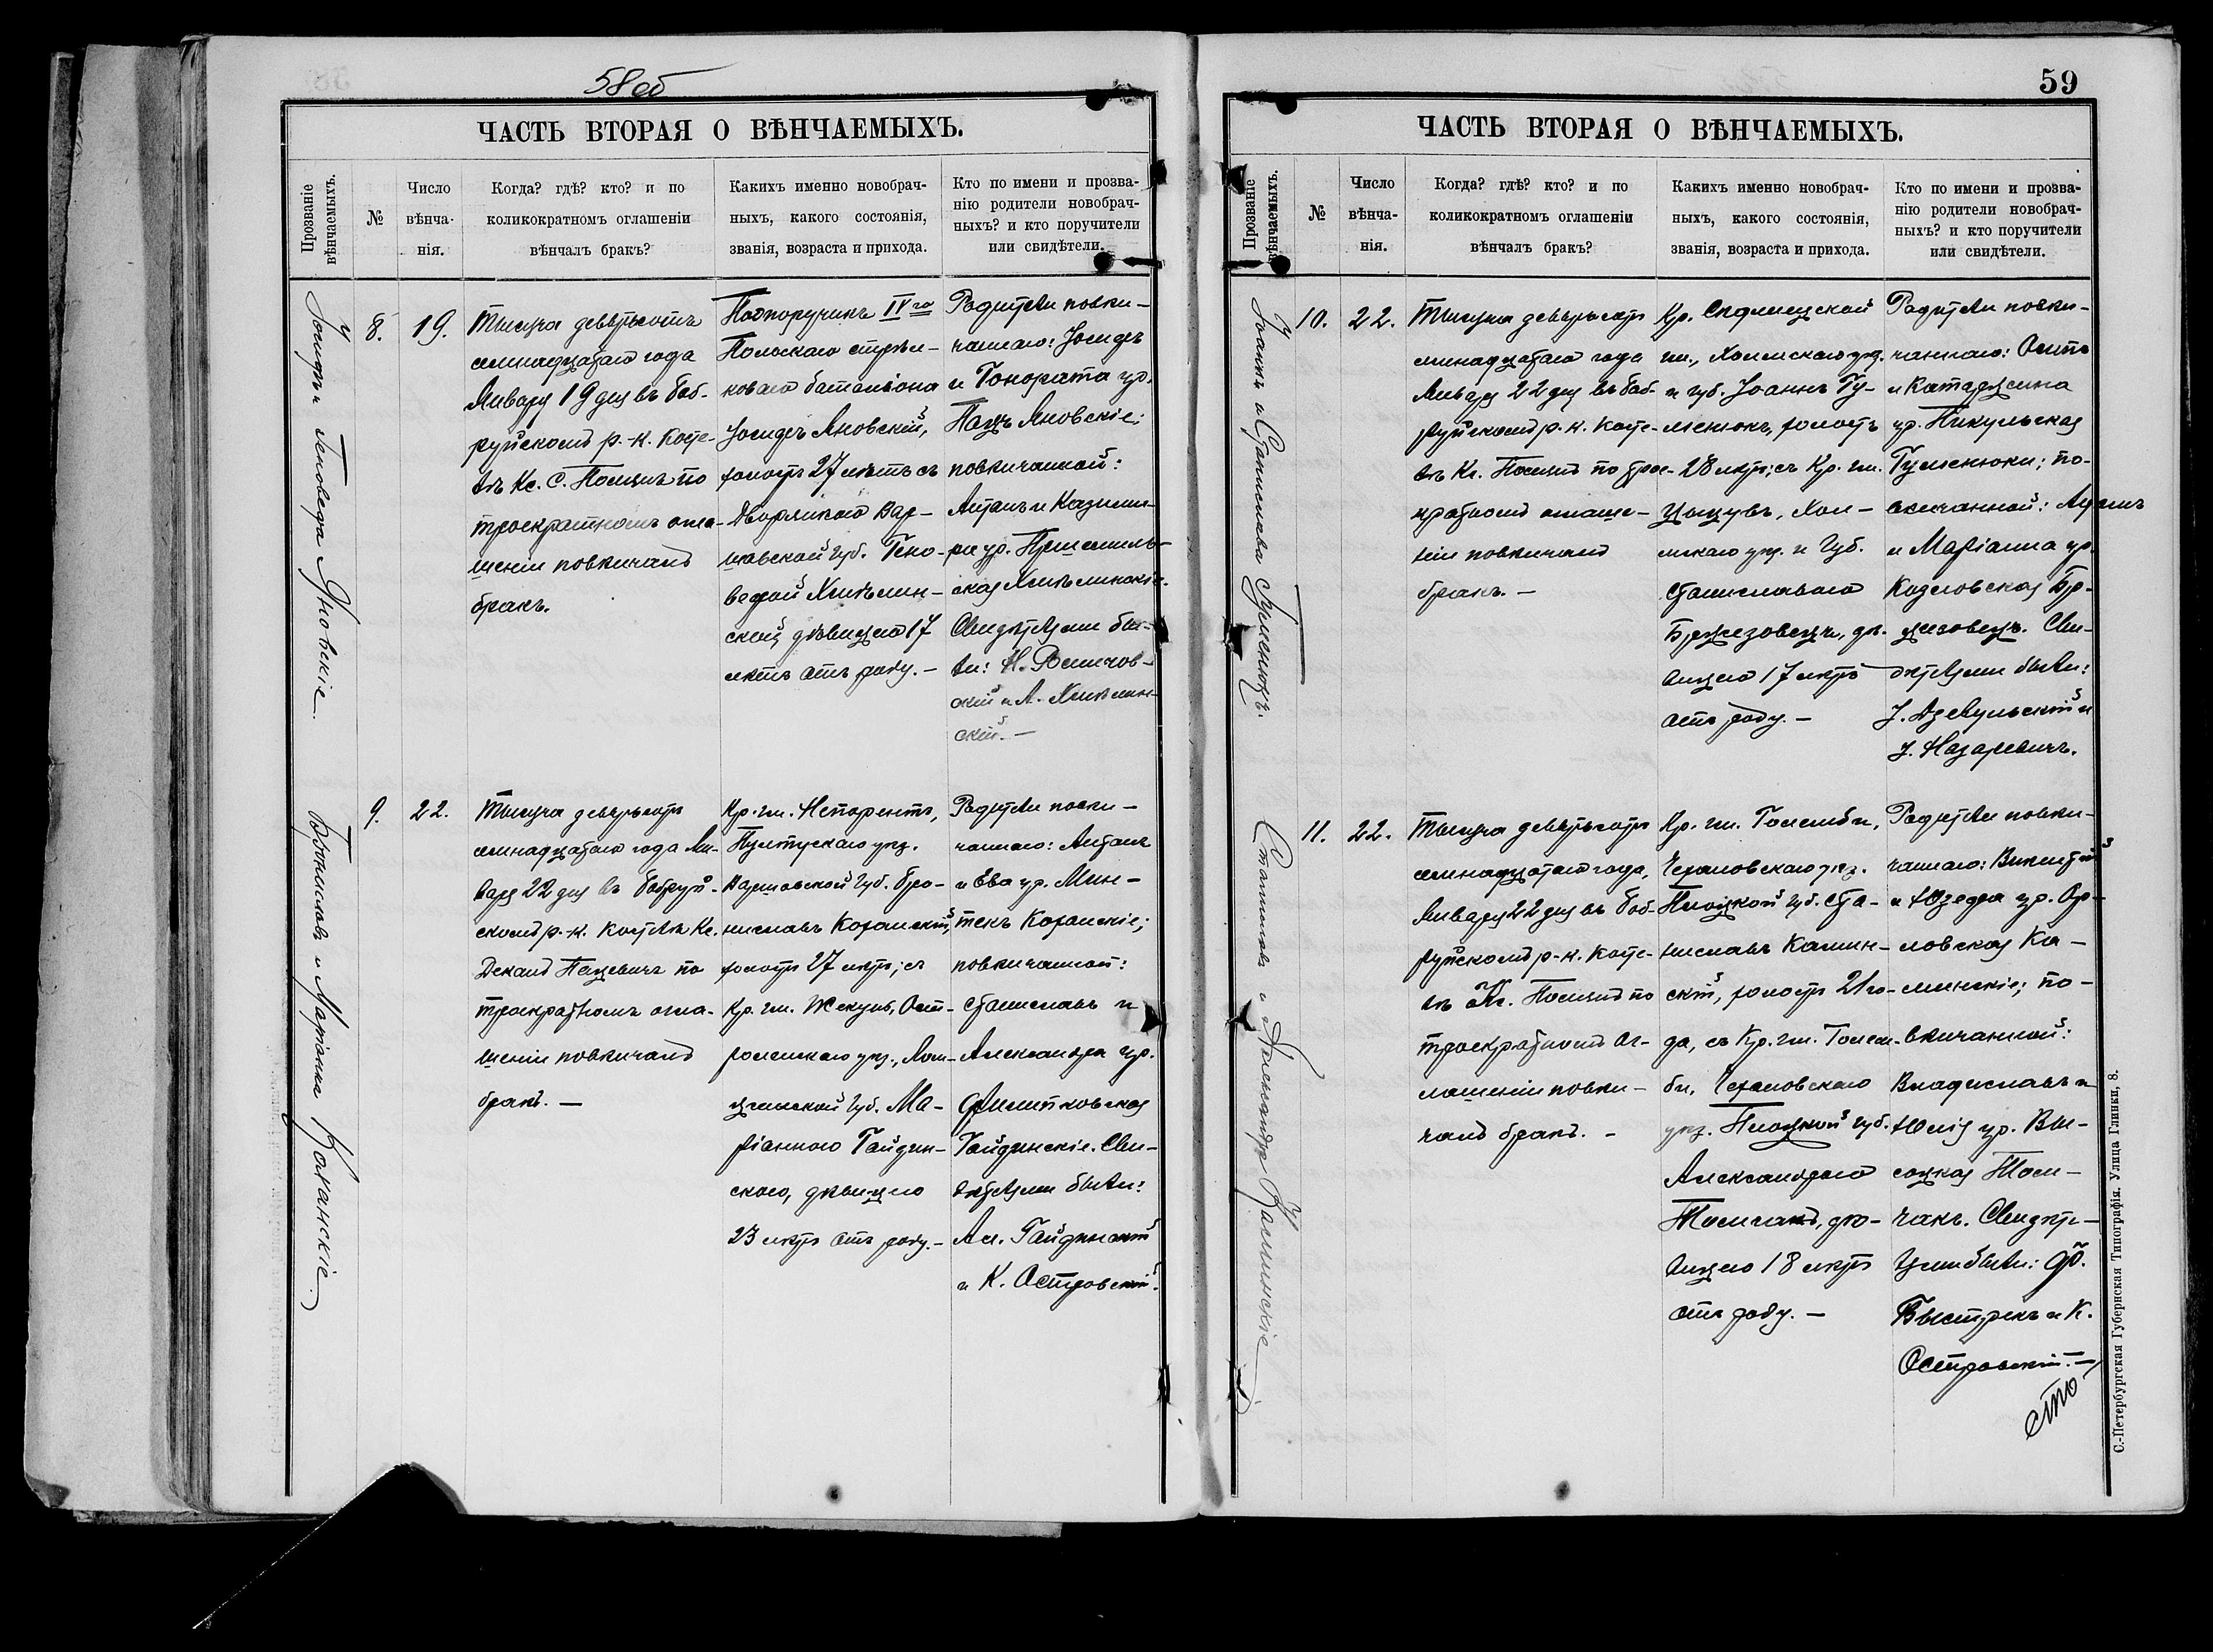 58 об
ЧАСТЬ ВТОРАЯ О ВѢНЧАЕМЫХЪ.
Прозваніе вѣнчаемыхъ.
№
Число
вѣнча-
нія.
Когда? гдѣ? кто? и по
коликократномъ оглашеніи
вѣнчалъ бракъ?
Какихъ именно новобрач-
ныхъ, какого состоянія,
званія, возраста и прихода.
Кто по имени и прозва-
нію родители новобрач-
ныхъ? и кто поручители
или свидѣтели.
Іосифъ и Геноведа Яновскіе.
8.
19.
Тысяча девятьсотъ
семнадцатаго года
Января 19 дня въ Боб-
руйскомъ р.-к. Косте-
лѣ Кс. С. Помѣшъ по
троекратномъ огла-
шеніи повѣнчанъ
бракъ.
Подпоручикъ IVго
Польскаго стрѣл-
коваго баталіона
Іосифъ Яновскій,
холостъ 27 лѣтъ съ
дворянкою Вар-
шавской губ. Гено-
ведой Хмѣлин-
ской дѣвицею 17
лѣтъ отъ роду. —
Родители повѣн-
чаннаго: Іосифъ
и Гонората ур.
Пацъ Яновскіе;
повѣнчанной:
Антонъ и Казими-
ра ур. Пршемыль-
ская Хмѣлинскіе.
Свидѣтелями бы-
ли:
и А. Хмѣлин-
скій. —
Брониславъ и Маріанна Коханскіе.
9.
22.
Тысяча девятьсотъ
семнадцатаго года Ян-
варя 22 дня въ Бобруй-
скомъ р.-к. Костелѣ Кс.
Деканъ Пацевичъ по
троекратномъ огла-
шеніи повѣнчанъ
бракъ. —
Кр. гм. Непорентъ,
Пултускаго уѣз.
Варшавской губ. Бро-
ниславъ Коханскій,
холостъ 27 лѣтъ; съ
Кр. гм. Жекунь, Ост-
роленскаго уѣз., Лом-
жинской губ. Ма-
ріанною Гайдин-
скою, дѣвицею
23 лѣтъ отъ роду. —
Родители повѣн-
чаннаго: Антонъ
и Ева ур. Мин-
текъ Коханскіе;
повѣнчанной:
Станиславъ и
Александра ур.
Филипковская
Гайдинскіе. Сви-
дѣтелями были:
Ал. Гайдинскій
и К. Островскій.
59
ЧАСТЬ ВТОРАЯ О ВѢНЧАЕМЫХЪ.
Прозваніе вѣнчаемыхъ.
№
Число
вѣнча-
нія.
Когда? гдѣ? кто? и по
коликократномъ оглашеніи
вѣнчалъ бракъ?
Какихъ именно новобрач-
ныхъ, какого состоянія,
званія, возраста и прихода.
Кто по имени и прозва-
нію родители новобрач-
ныхъ? и кто поручители
или свидѣтели.
Іоаннъ и Станислава Гуменюкъ.
10.
22.
Тысяча девятьсотъ
семнадцатаго года
Января 22 дня въ Боб-
руйскомъ р.-к. Косте-
лѣ Кс. Помѣшъ по трое-
кратномъ оглаше-
ніи повѣнчанъ
бракъ. —
Кр.
гм., Холмскаго уѣз.
и губ. Іоаннъ Гу-
менюкъ, холостъ
28 лѣтъ; съ Кр. гм.
Цыцувъ, Хол-
мскаго уѣз. и Губ.
Станиславою
Бржезовецъ, дѣ-
вицею 17 лѣтъ
отъ роду. —
Родители повѣн-
чаннаго: Осипъ
и Катаржина
ур. Пикульская
Гуменюки; по-
вѣнчанной: Адамъ
и Маріанна ур.
Козловская Бр-
жезовецъ. Сви-
дѣтелями были:
и
Назаревичъ.
Станиславъ и Александра Каминскіе
11.
22.
Тысяча девятьсотъ
семнадцатаго года,
Января 22 дня въ Боб-
руйскомъ р.-к. Косте-
лѣ Кс. Помѣшъ по
троекратномъ ог-
лашеніи повѣн-
чанъ бракъ. —
Кр. гм. Голымби,
Чехановскаго уѣз.
Плоцкой губ. Ста-
ниславъ Камин-
скій, холостъ 21 го-
да, съ Кр. гм. Голым-
би, Чехановскаго
уѣз. Плоцкой губ.
Александрою
Томчакъ, дѣ-
вицею 18 лѣтъ
отъ роду. —
Родители повѣн-
чаннаго: Викентій
и Юзефа ур. Ор-
ловская Ка-
минскіе; по-
вѣнчанной:
Владиславъ и
Юлія ур. Вы-
соцкая Том-
чакъ. Свидѣте-
лями были: Ф.
Быстрекъ и К.
Островскій. —
сто
С.-Петербургская Губернская Типографія. Улица Глинки, 8.